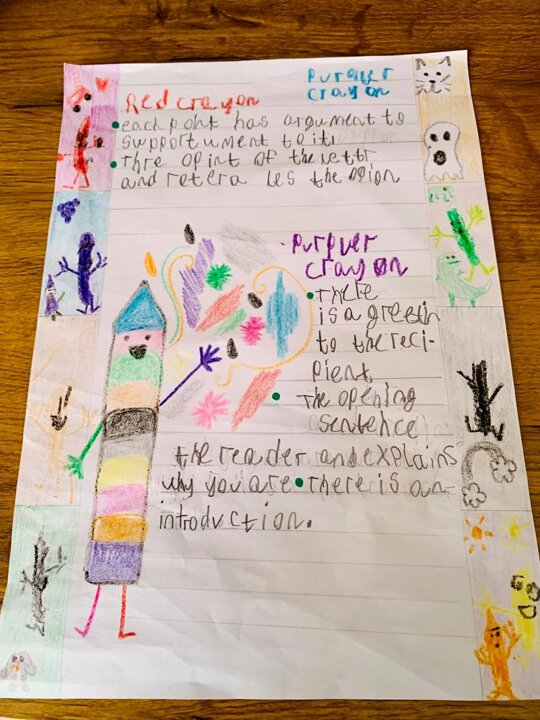 Red crayon
Purquer
crayon
each point has argument to
support ument to it
thre opint of the
and the
Purpuer
crayon
There
is a greetin
to the reci-
pient
The opening
sentence
the reader and explains
why you are There is an
introduction.